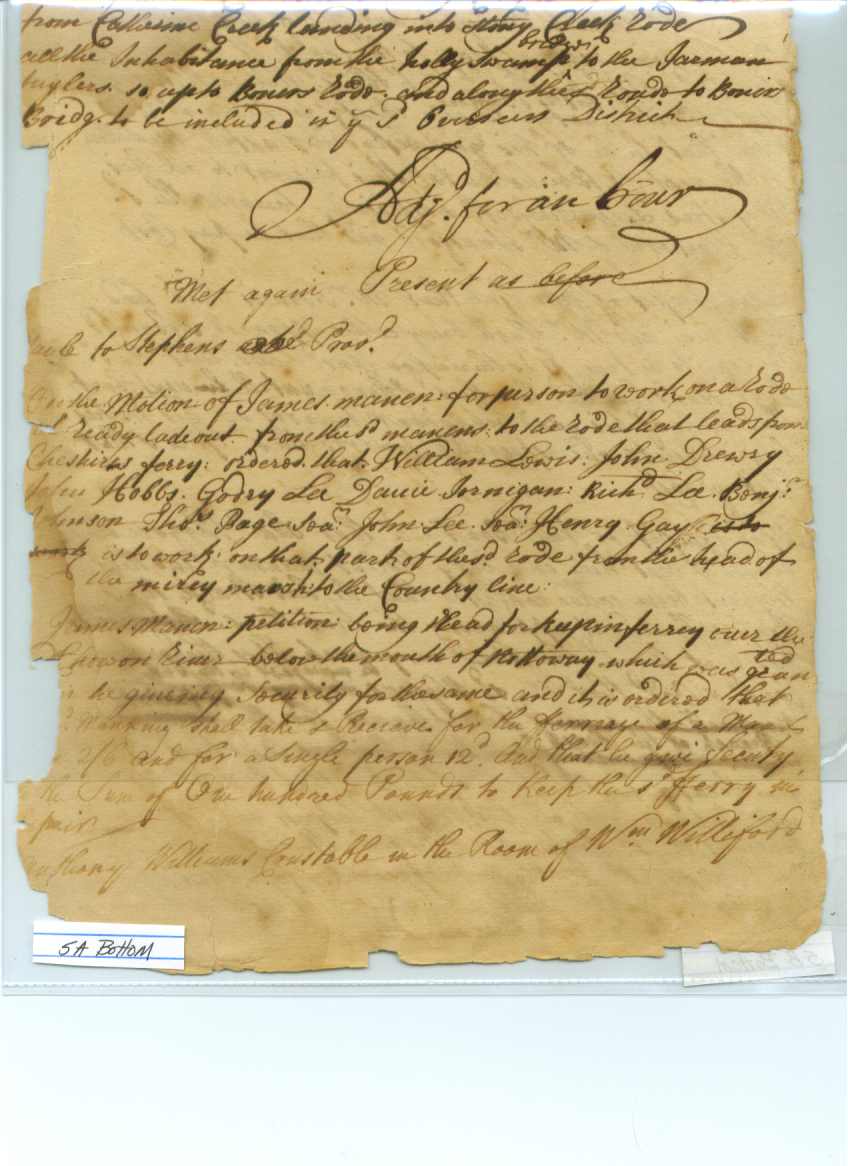 from Catherine Creek landing into Stony Creek Rode
all the Inhabitance from the holly Swamp bridg to the Jarman
tuylers. so up to Boners Rode. and along thes Roade to Boners
Bridg. to be included in yᵉ sᵈ Overseers District
Adjᵈ. for an hour
Met again Present as before
to Stephens Provᵈ.
On the Motion of James manen: for person to work on a Rode
ready lade out from the sᵈ manens: to the Rode that leads from
Cheshires ferry: ordered. that. William Lewis: John Drewry
John Hobbs. Godry Lee Davie Jornigan: Richᵈ Lee. Benjᵃ.
Johnson Thoˢ. Page Soaʳ: John Lee. Soaʳ: Henry Gay is to
work is to work: on that. part of the sᵈ Rode from the head of
the mirey marsh: to the Country line:
James Manen: petition: being Head for keepin ferrey over the
Chowon River below the mouth of Hottoway. which was granted
he giveing Security for the same and it is ordered that
Manning shall take & Receave for the ferriage of a Man &
2/6 and for a Single person 12ᵈ. And that he give Security
the Sum of One hundred Pounds to Keep the sᵈ Fferry in
pair
Anthony Williams Constable in the Room of Wᵐ Williford
5A Bottom